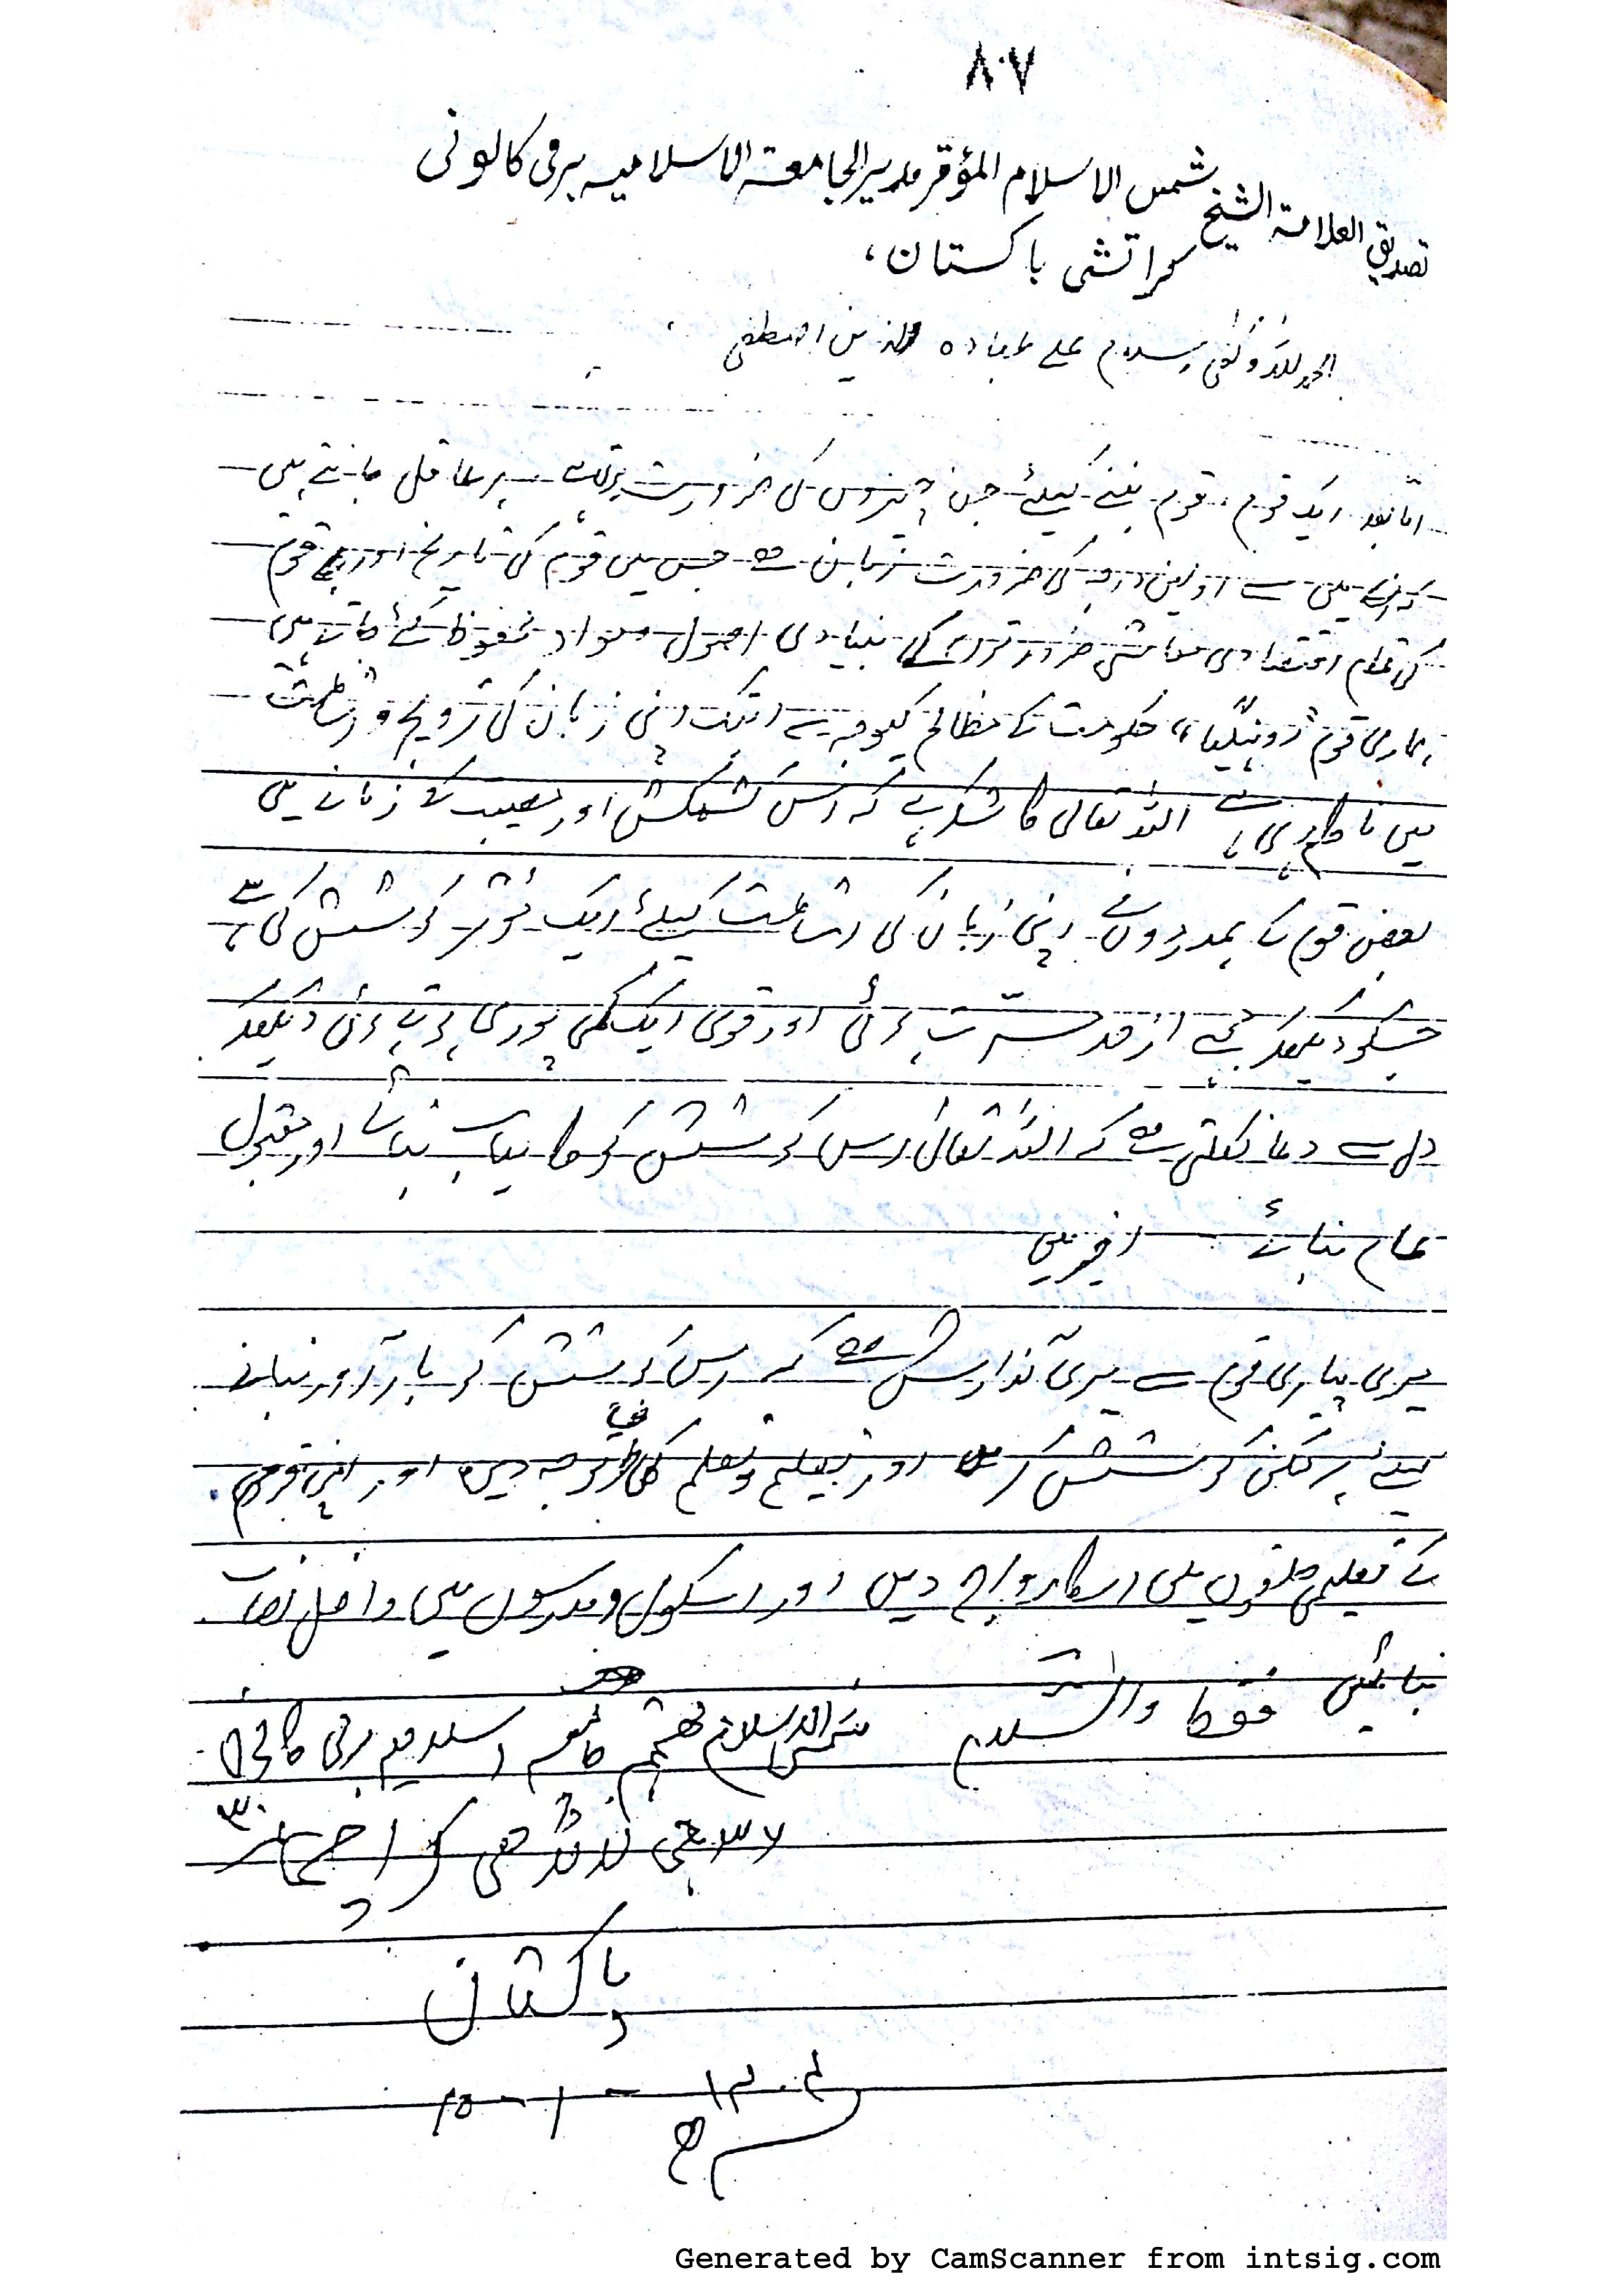 ٨٠٧
تصديق العلامة الشيخ شمس الاسلام المؤقر مدير الجامعة الاسلاميه برمى كالونى
كراتشى باكستان،
الحمد للہ وکفی وسلام علی عبادہ الذین اصطفی
امّا بعد ایک قوم، قوم بننے کیلئے جن چیزوں کی ضرورت پڑتی ہے ہر عاقل جانتے ہیں
کہ ان میں سے اولین درجہ کی ضرورت زبان ہے جس میں قوم کی تاریخ اور قوم
کی تمام اقتصادی معاشی ضرورتوں کے بنیادی اصول مواد محفوظ کئے جاتے ہیں
ہماری قوم "روہنگیا" حکومت کے مظالم کیوجہ سے ابتک اپنی زبان کی ترویج و اشاعت
میں ناکام رہی ہے اللہ تعالی کا شکر ہے کہ اس کشمکش اور مصیبت کے زمانے میں
بعض قوم کے ہمدردوں نے اپنی زبان کی اشاعت کیلئے ایک مؤثر کوشش کی ہے
جسکو دیکھکر مجھے از حد مسرت ہوئی اور قومی ایک کمی پوری ہوتے ہوئی دیکھکر
دل سے دعا نکلتی ہے کہ اللہ تعالیٰ اس کوشش کو کامیاب بنائے اور مقبول
عام بنائے اخیر میں
میری پیاری قوم سے میری گذارش ہے کہ اس کوشش کو بار آور بنانے
کیلئے ہر ممکن کوشش کریں اور تعلیم و تعلم کی توجہ دیں اور اپنی قوم
کے تعلیمی حلقوں میں اسکا رواج دیں اور اسکول و مدرسوں میں داخل نصاب
بنائیں فقط والسّلام شمس الاسلام مہتمم جامعہ اسلامیہ برمی کالونی
٣٦ جی لانڈھی کراچی ٣٠
پاکستان
١٤٠٤ - ١ - ١٥
ھ